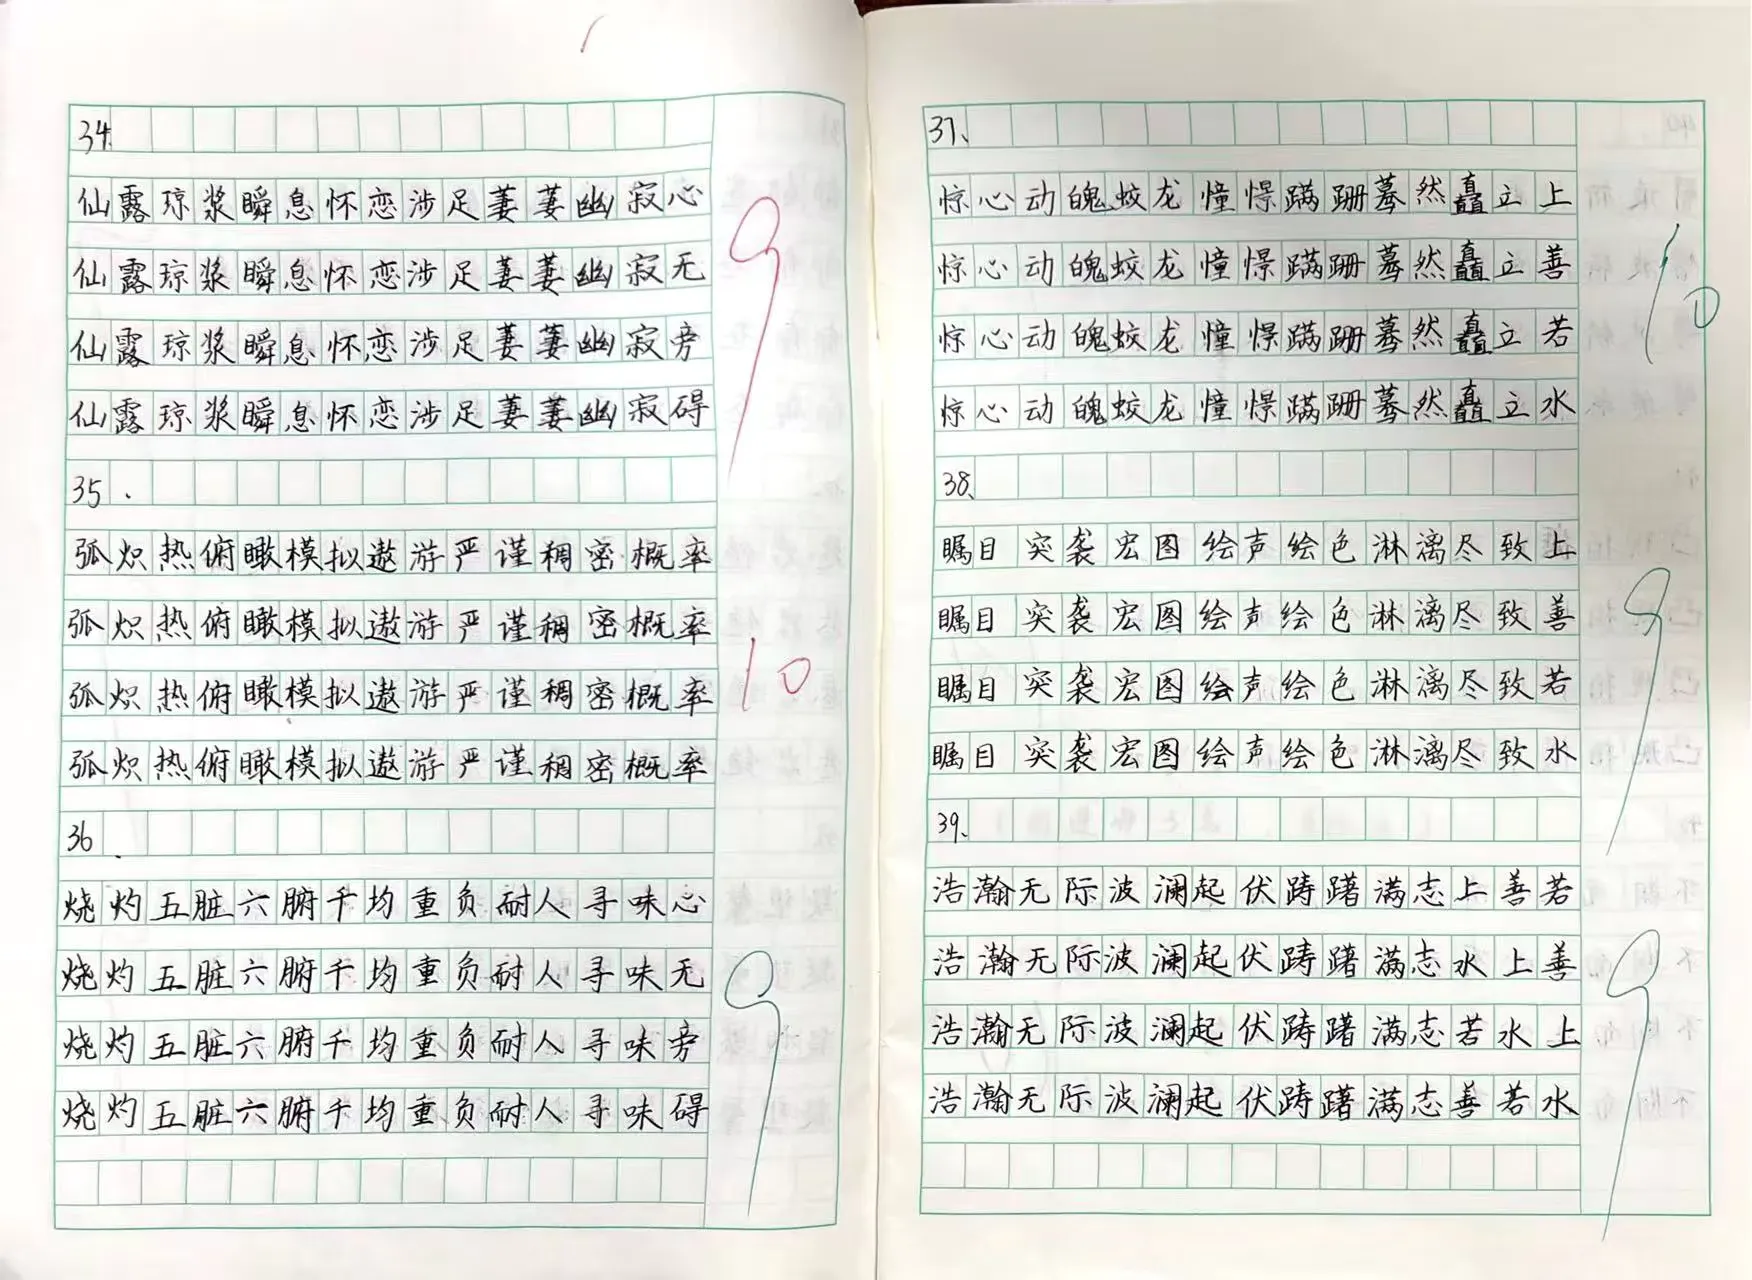 34.
仙露琼浆瞬息怀恋涉足萋萋幽寂心
仙露琼浆瞬息怀恋涉足萋萋幽寂无
仙露琼浆瞬息怀恋涉足萋萋幽寂旁
仙露琼浆瞬息怀恋涉足萋萋幽寂碍
9
35.
弧炽热俯瞰模拟遨游严谨稠密概率
弧炽热俯瞰模拟遨游严谨稠密概率
弧炽热俯瞰模拟遨游严谨稠密概率
弧炽热俯瞰模拟遨游严谨稠密概率
10
36
烧灼五脏六腑千均重负耐人寻味心
烧灼五脏六腑千均重负耐人寻味无
烧灼五脏六腑千均重负耐人寻味旁
烧灼五脏六腑千均重负耐人寻味碍
9
37、
惊心动魄蛟龙憧憬蹒跚蓦然矗立上
惊心动魄蛟龙憧憬蹒跚蓦然矗立善
惊心动魄蛟龙憧憬蹒跚蓦然矗立若
惊心动魄蛟龙憧憬蹒跚蓦然矗立水
10
38、
瞩目突袭宏图绘声绘色淋漓尽致上
瞩目突袭宏图绘声绘色淋漓尽致善
瞩目突袭宏图绘声绘色淋漓尽致若
瞩目突袭宏图绘声绘色淋漓尽致水
9
39、
浩瀚无际波澜起伏踌躇满志上善若
浩瀚无际波澜起伏踌躇满志水上善
浩瀚无际波澜起伏踌躇满志若水上
浩瀚无际波澜起伏踌躇满志善若水
9